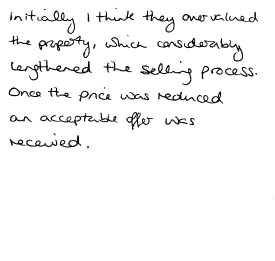 Initially I think they overvalued
the property, which considerably
lengthened the selling process.
Once the price was reduced
an acceptable offer was
received.